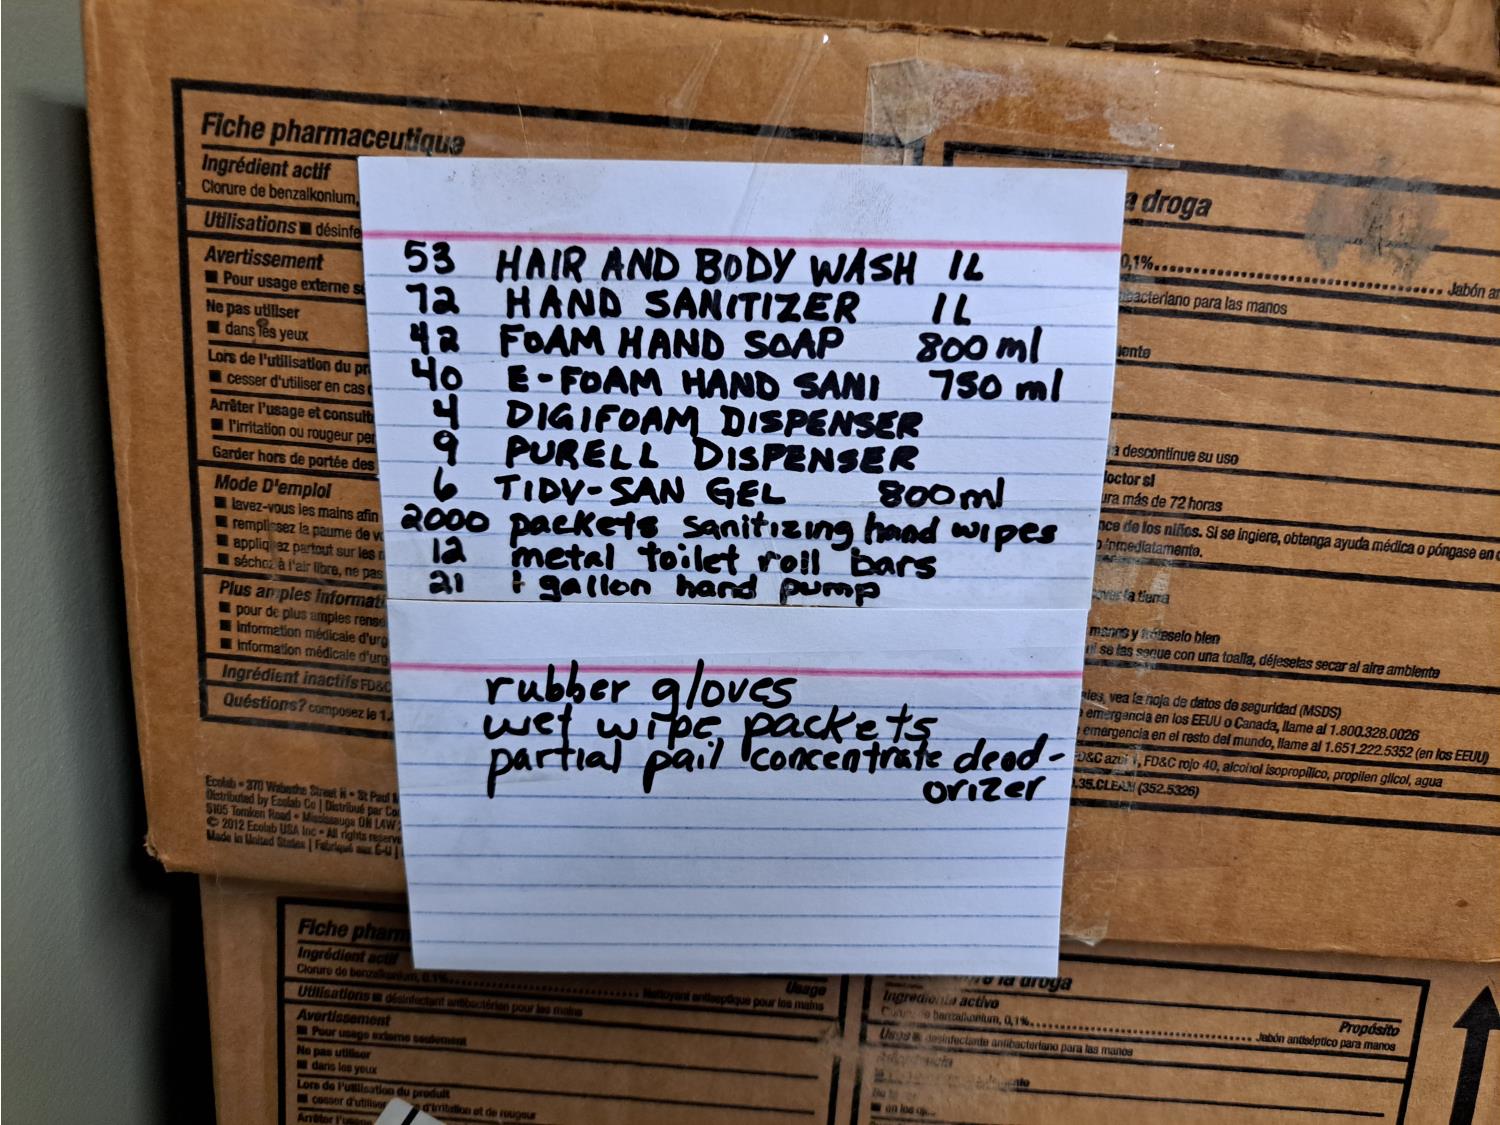 Fiche pharmaceutique
Ingrédient actif
Clorure de benzalkonium,
Utilisations ■ désinfe
Avertissement
■ Pour usage externe s
Ne pas utiliser
■ dans les yeux
Lors de l'utilisation du pr
■ cesser d'utiliser en cas
Arrêter l'usage et consult
■ l'irritation ou rougeur pe
Garder hors de portée des
Mode D'emploi
■ lavez-vous les mains afin
■ remplissez la paume de v
■ appliquez partout sur les
■ séchoz à l'air libre, ne pas
Plus amples informati
■ pour de plus amples rense
■ Information médicale d'urg
■ Information médicale d'urg
Ingrédient inactifs FD&C
Quéstions? composez le 1.
Ecolab • 370 Wabasha Street N • St Paul
Distributed by Ecolab Co | Distribué par Co
5105 Tomken Road • Mississauga ON L4W
© 2012 Ecolab USA Inc • All rights reserve
Made in United States | Fabriqué aux É-U |
53 HAIR AND BODY WASH 1L
72 HAND SANITIZER 1L
42 FOAM HAND SOAP 800 ml
40 E-FOAM HAND SANI 750 ml
4 DIGIFOAM DISPENSER
9 PURELL DISPENSER
6 TIDY-SAN GEL 800 ml
2000 packets sanitizing hand wipes
12 metal toilet roll bars
21 1 gallon hand pump
rubber gloves
wet wipe packets
partial pail concentrate deod-
orizer
a droga
0,1%
Jabón an
bacteriano para las manos
ento
a descontinue su uso
doctor si
ura más de 72 horas
nce de los niños. Si se ingiere, obtenga ayuda médica o póngase en
inmediatamente.
la tierra
manos y fróteselo bien
ni se las seque con una toalla, déjeselas secar al aire ambiente
ales, vea la hoja de datos de seguridad (MSDS)
emergencia en los EEUU o Canada, llame al 1.800.328.0026
emergencia en el resto del mundo, llame al 1.651.222.5352 (en los EEUU)
D&C azul 1, FD&C rojo 40, alcohol isopropílico, propilen glicol, agua
.35.CLEAN (352.5326)
Fiche pharm
Ingrédient actif
Clorure de benzalkonium, 0,1%
Usage
Nettoyant antiseptique pour les mains
Utilisations ■ désinfectant antibactérien pour les mains
Avertissement
■ Pour usage externe seulement
Ne pas utiliser
■ dans les yeux
Lors de l'utilisation du produit
■ cesser d'utiliser d'irritation et de rougeur
Arrêter l'usage
la droga
Ingrediente activo
Cloruro de benzalkonium, 0,1%
Propósito
Jabón antiséptico para manos
Usos ■ desinfectante antibacteriano para las manos
■ en los oj